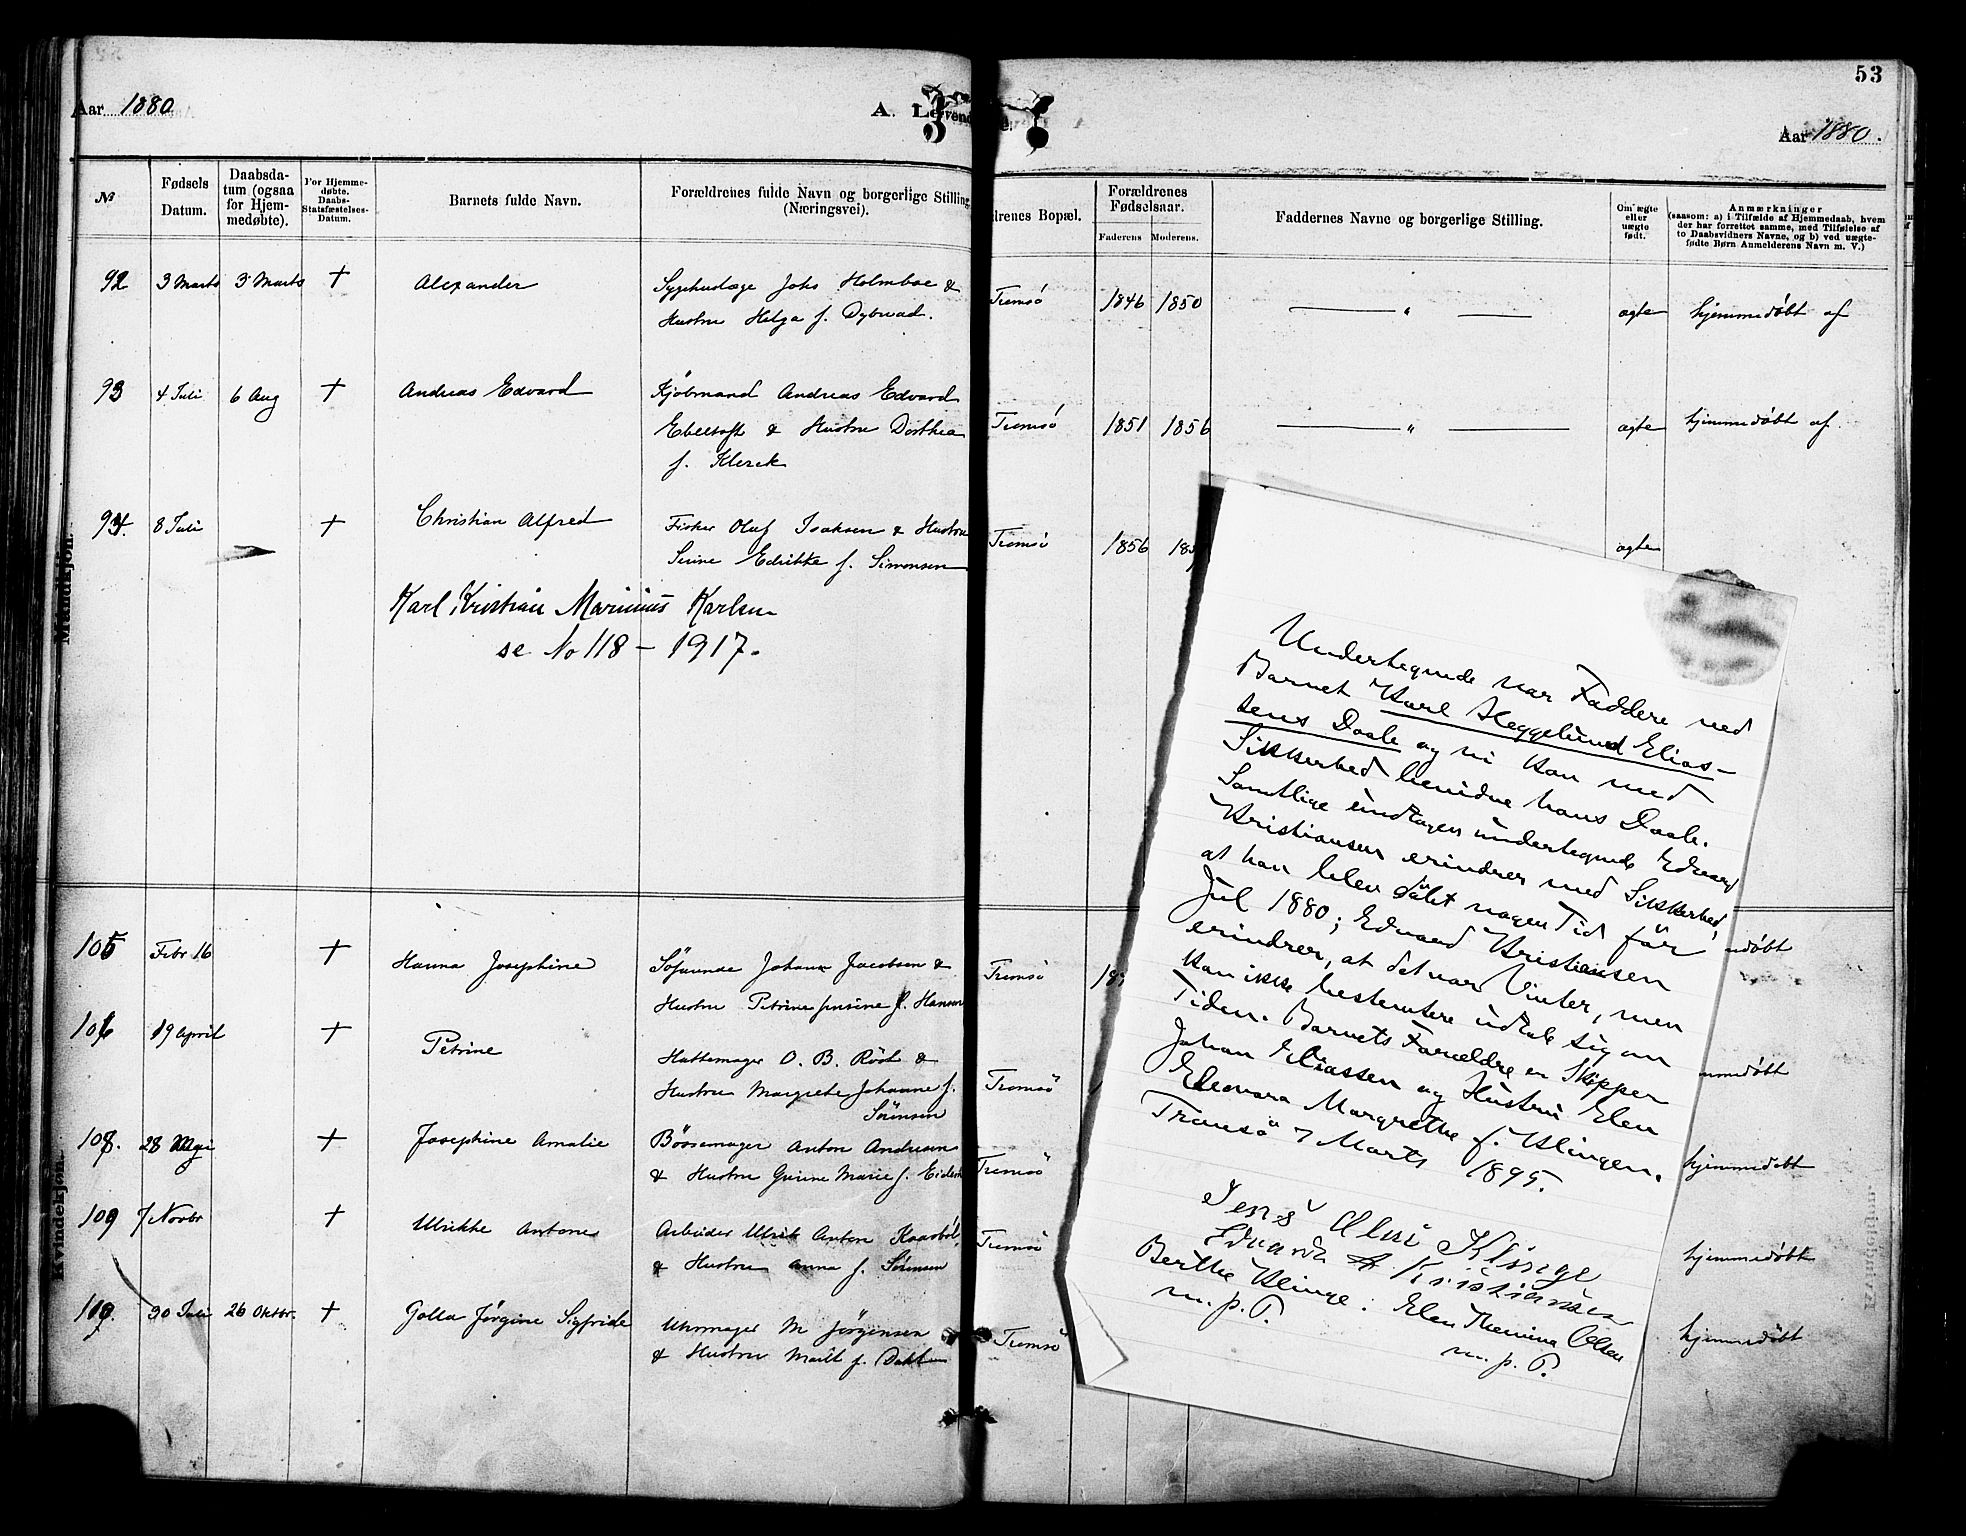 53
Aar 1880
A. Levende
Aar 1880.
№
Fødsels Datum.
Daabsdatum (ogsaa for Hjemmedøbte).
For Hjemmedøbte. Daabs-Statsfæstelses-Datum.
Barnets fulde Navn.
Forældrenes fulde Navn og borgerlige Stilling (Næringsvei).
drenes Bopæl.
Forældrenes Fødselsaar.
Faderens Moderens.
Faddernes Navne og borgerlige Stilling.
Om ægte eller uægte født.
Anmærkninger
(saasom: a) i Tilfælde af Hjemmedaab, hvem
der har forrettet samme, med Tilføielse af
to Daabsvidners Navne, og b) ved uægte-
fødte Børn Anmelderens Navn m. V.)
Mandkjøn.
92 3 Marts 3 Marts + Alexander Sygehuslæge Johs Holmboe & Tromsö 1846 1850 " ægte hjemmedøbt af
Hustru Helga f. Dybwad.
93 4 Juli 6 Aug + Andreas Edvard Kjöbmand Andreas Edvard Tromsö 1851 1856 " ægte hjemmedøbt af
Ebeltoft & Hustru Dorthea
f. Klerck
94. 8 Juli + Christian Alfred Fisker Oluf Isaksen & Hustru Tromsö 1856 ægte
Edrikke f. Simonsen
Karl Kristian Marinius Karlsen
se No 118 – 1917.
Kvindekjøn.
105 Febr 16 + Hanna Josephine Johan Jacobsen & Tromsö døbt
Hustru Petrine f. Hansen
106 19 April + Petrine Hattemager O. B. Röst & Tromsö mmedøbt
Hustru Margrethe Johanne f.
Sörensen
108. 28 Mai + Josephine Amalie Börsemager Anton Andresen Tromsö hjemmedøbt
& Hustru Gurine Marie f.
109 7 Novbr + Ulrikke Antone Arbeider Ulrik Anton Tromsö hjemmedøbt
& Hustru Anna f. Sörensen
30 Juli 26 Oktbr. + Golla Jørgine Sigfride Uhrmager M Jørgensen Tromsö hjemmedøbt
& Hustru
Undertegnede var Faddere ved
Barnet Karl Heggelund Elias-
sens Daab og vi kan med
Sikkerhed bevidne hans Daab.
Samtlige undtagen undertegnede Edvard
Kristiansen erindrer med Sikkerhed,
at han blev döbt nogen Tid för
Jul 1880; Edvard Kristiansen
erindrer, at det var Vinter, men
kan ikke bestemtere udtale sig om
Tiden. Barnets Forældre er Skipper
Johan Eliassen og Hustru Elen
Eleonora Margrethe f. Klingen.
Tromsö 7 Marts 1895.
Jens Klinge
Edvard A Kristiansen
Berthe Klinge: Elen Olsen
m. p. P.
m. p. P.